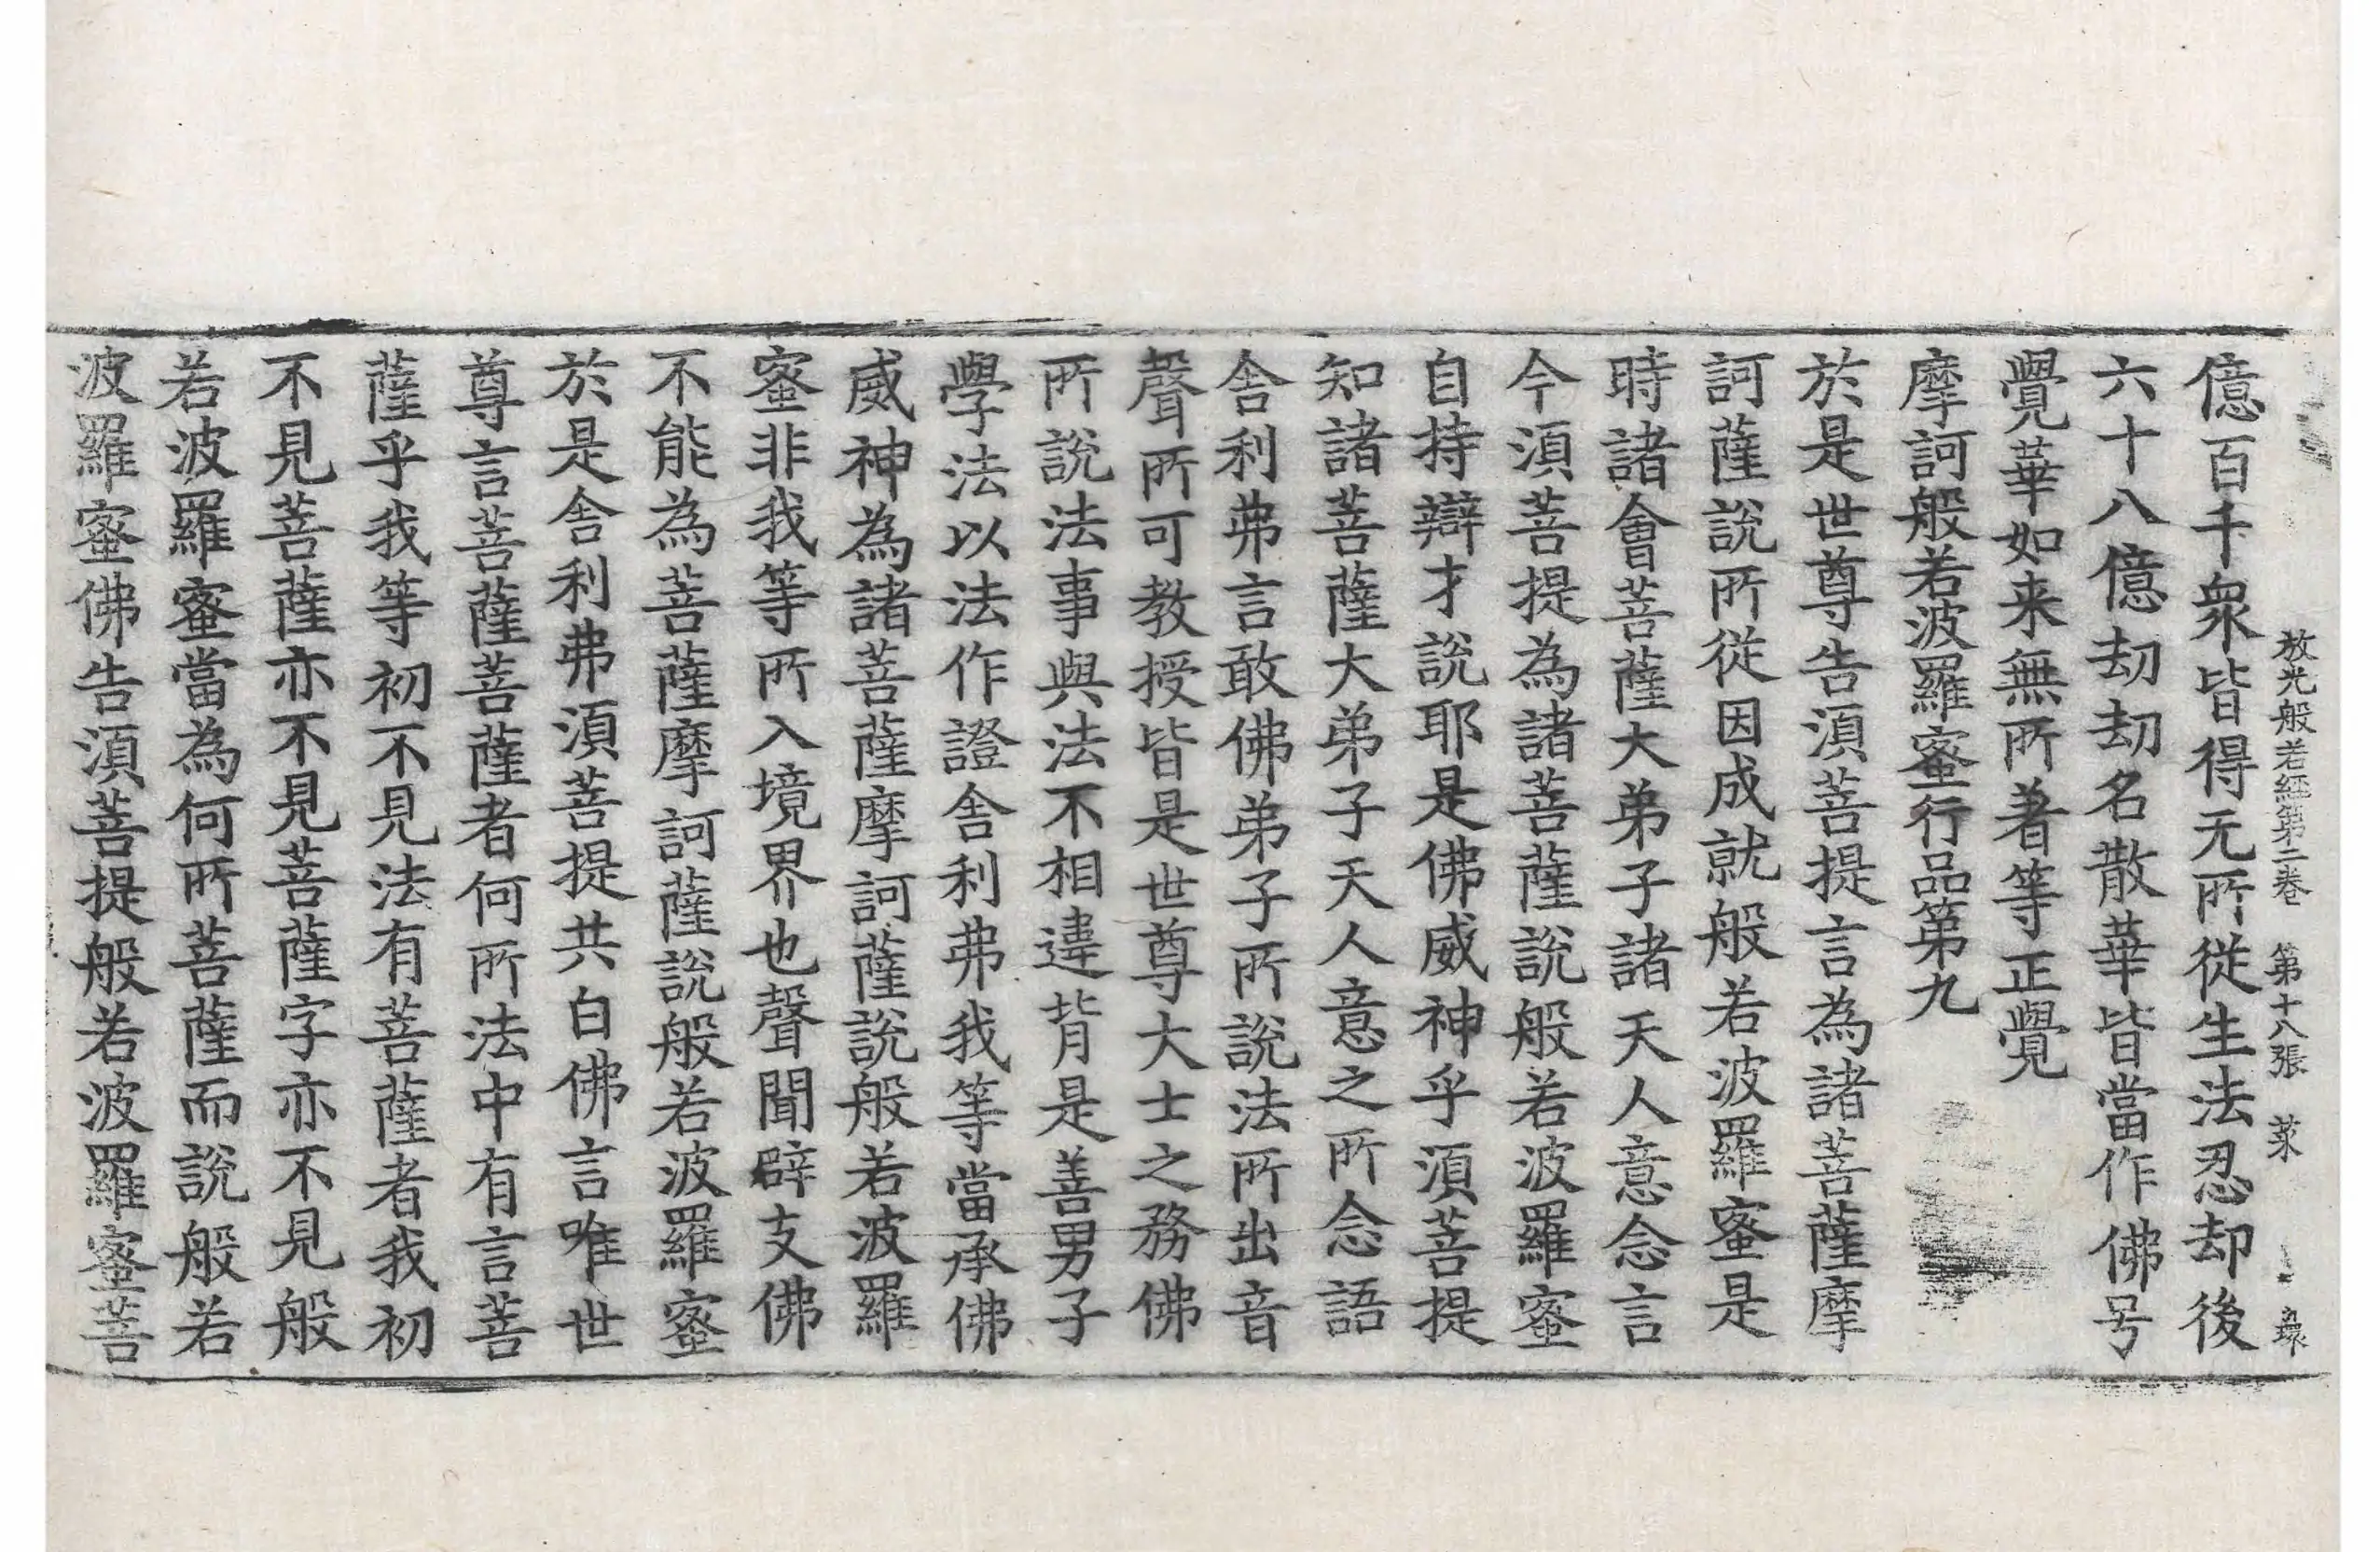 放光般若經第二卷 第十八張 菜
億百千衆皆得无所從生法忍却後
六十八億劫劫名散華皆當作佛号
覺華如来無所著等正覺
摩訶般若波羅蜜行品第九
於是世尊告湏菩提言為諸菩薩摩
訶薩說所從因成就般若波羅蜜是
時諸會菩薩大弟子諸天人意念言
今湏菩提為諸菩薩說般若波羅蜜
自持辯才說耶是佛威神乎湏菩提
知諸菩薩大弟子天人意之所念語
舍利弗言敢佛弟子所說法所出音
聲所可教授皆是世尊大士之務佛
所說法事與法不相違背是善男子
學法以法作證舍利弗我等當承佛
威神為諸菩薩摩訶薩說般若波羅
蜜非我等所入境界也聲聞辟支佛
不能為菩薩摩訶薩說般若波羅蜜
於是舍利弗湏菩提共白佛言唯世
尊言菩薩菩薩者何所法中有言菩
薩乎我等初不見法有菩薩者我初
不見菩薩亦不見菩薩字亦不見般
若波羅蜜當為何所菩薩而說般若
波羅蜜佛告湏菩提般若波羅蜜菩